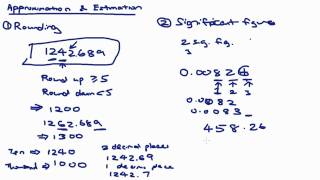 Approximation & Estimation
① Rounding
1242.689
Round up ≥5
Round down <5
⇒ 1200
1262.689
⇒ 1300
Ten ⇒ 1240
Thousand ⇒ 1000
2 decimal places
1242.69
1 decimal place
1242.7
② Significant figure
2 sig. fig.
3
0.00826
1 2 3
0.0082
0.0083
458.26